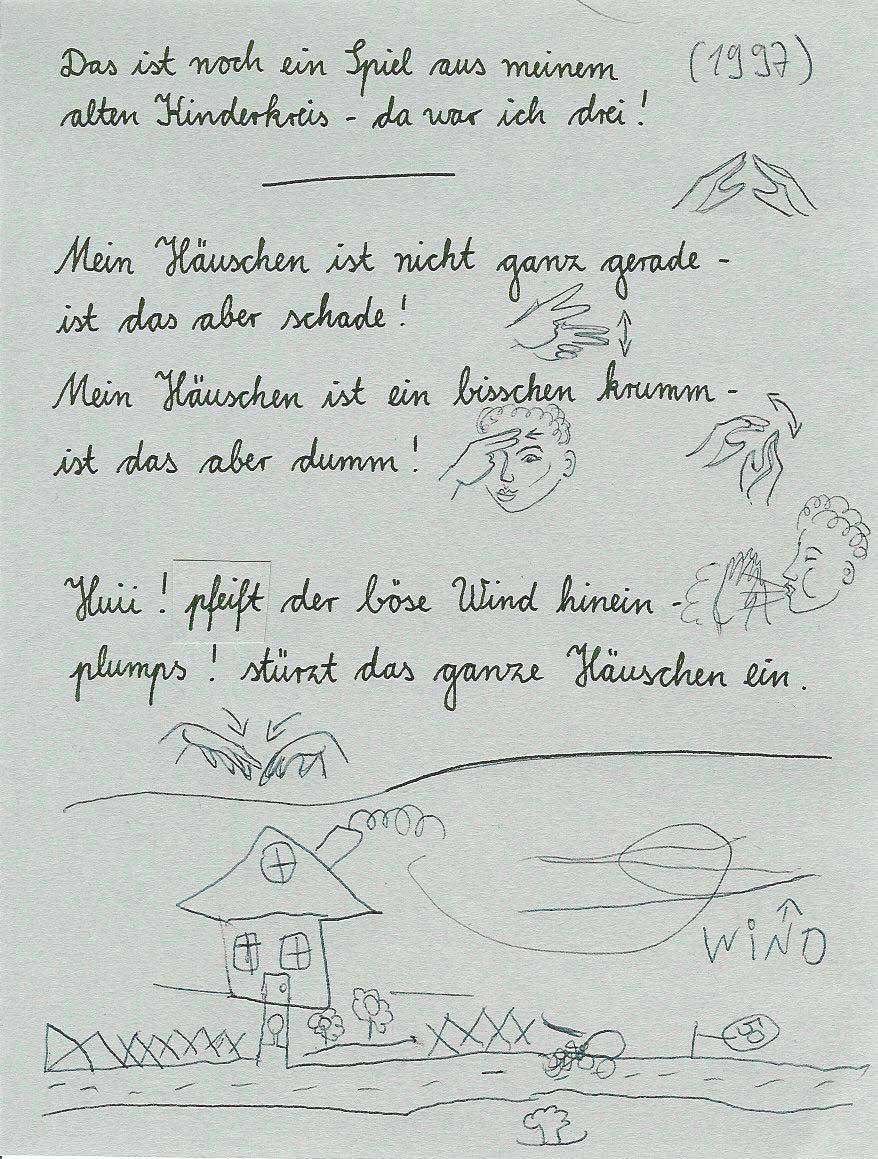 Das ist noch ein Spiel aus meinem (1997)
alten Kinderkreis - da war ich drei!
Mein Häuschen ist nicht ganz gerade -
ist das aber schade!
Mein Häuschen ist ein bisschen krumm -
ist das aber dumm!
Huii! pfeift der böse Wind hinein -
plumps! stürzt das ganze Häuschen ein.
WiND
50